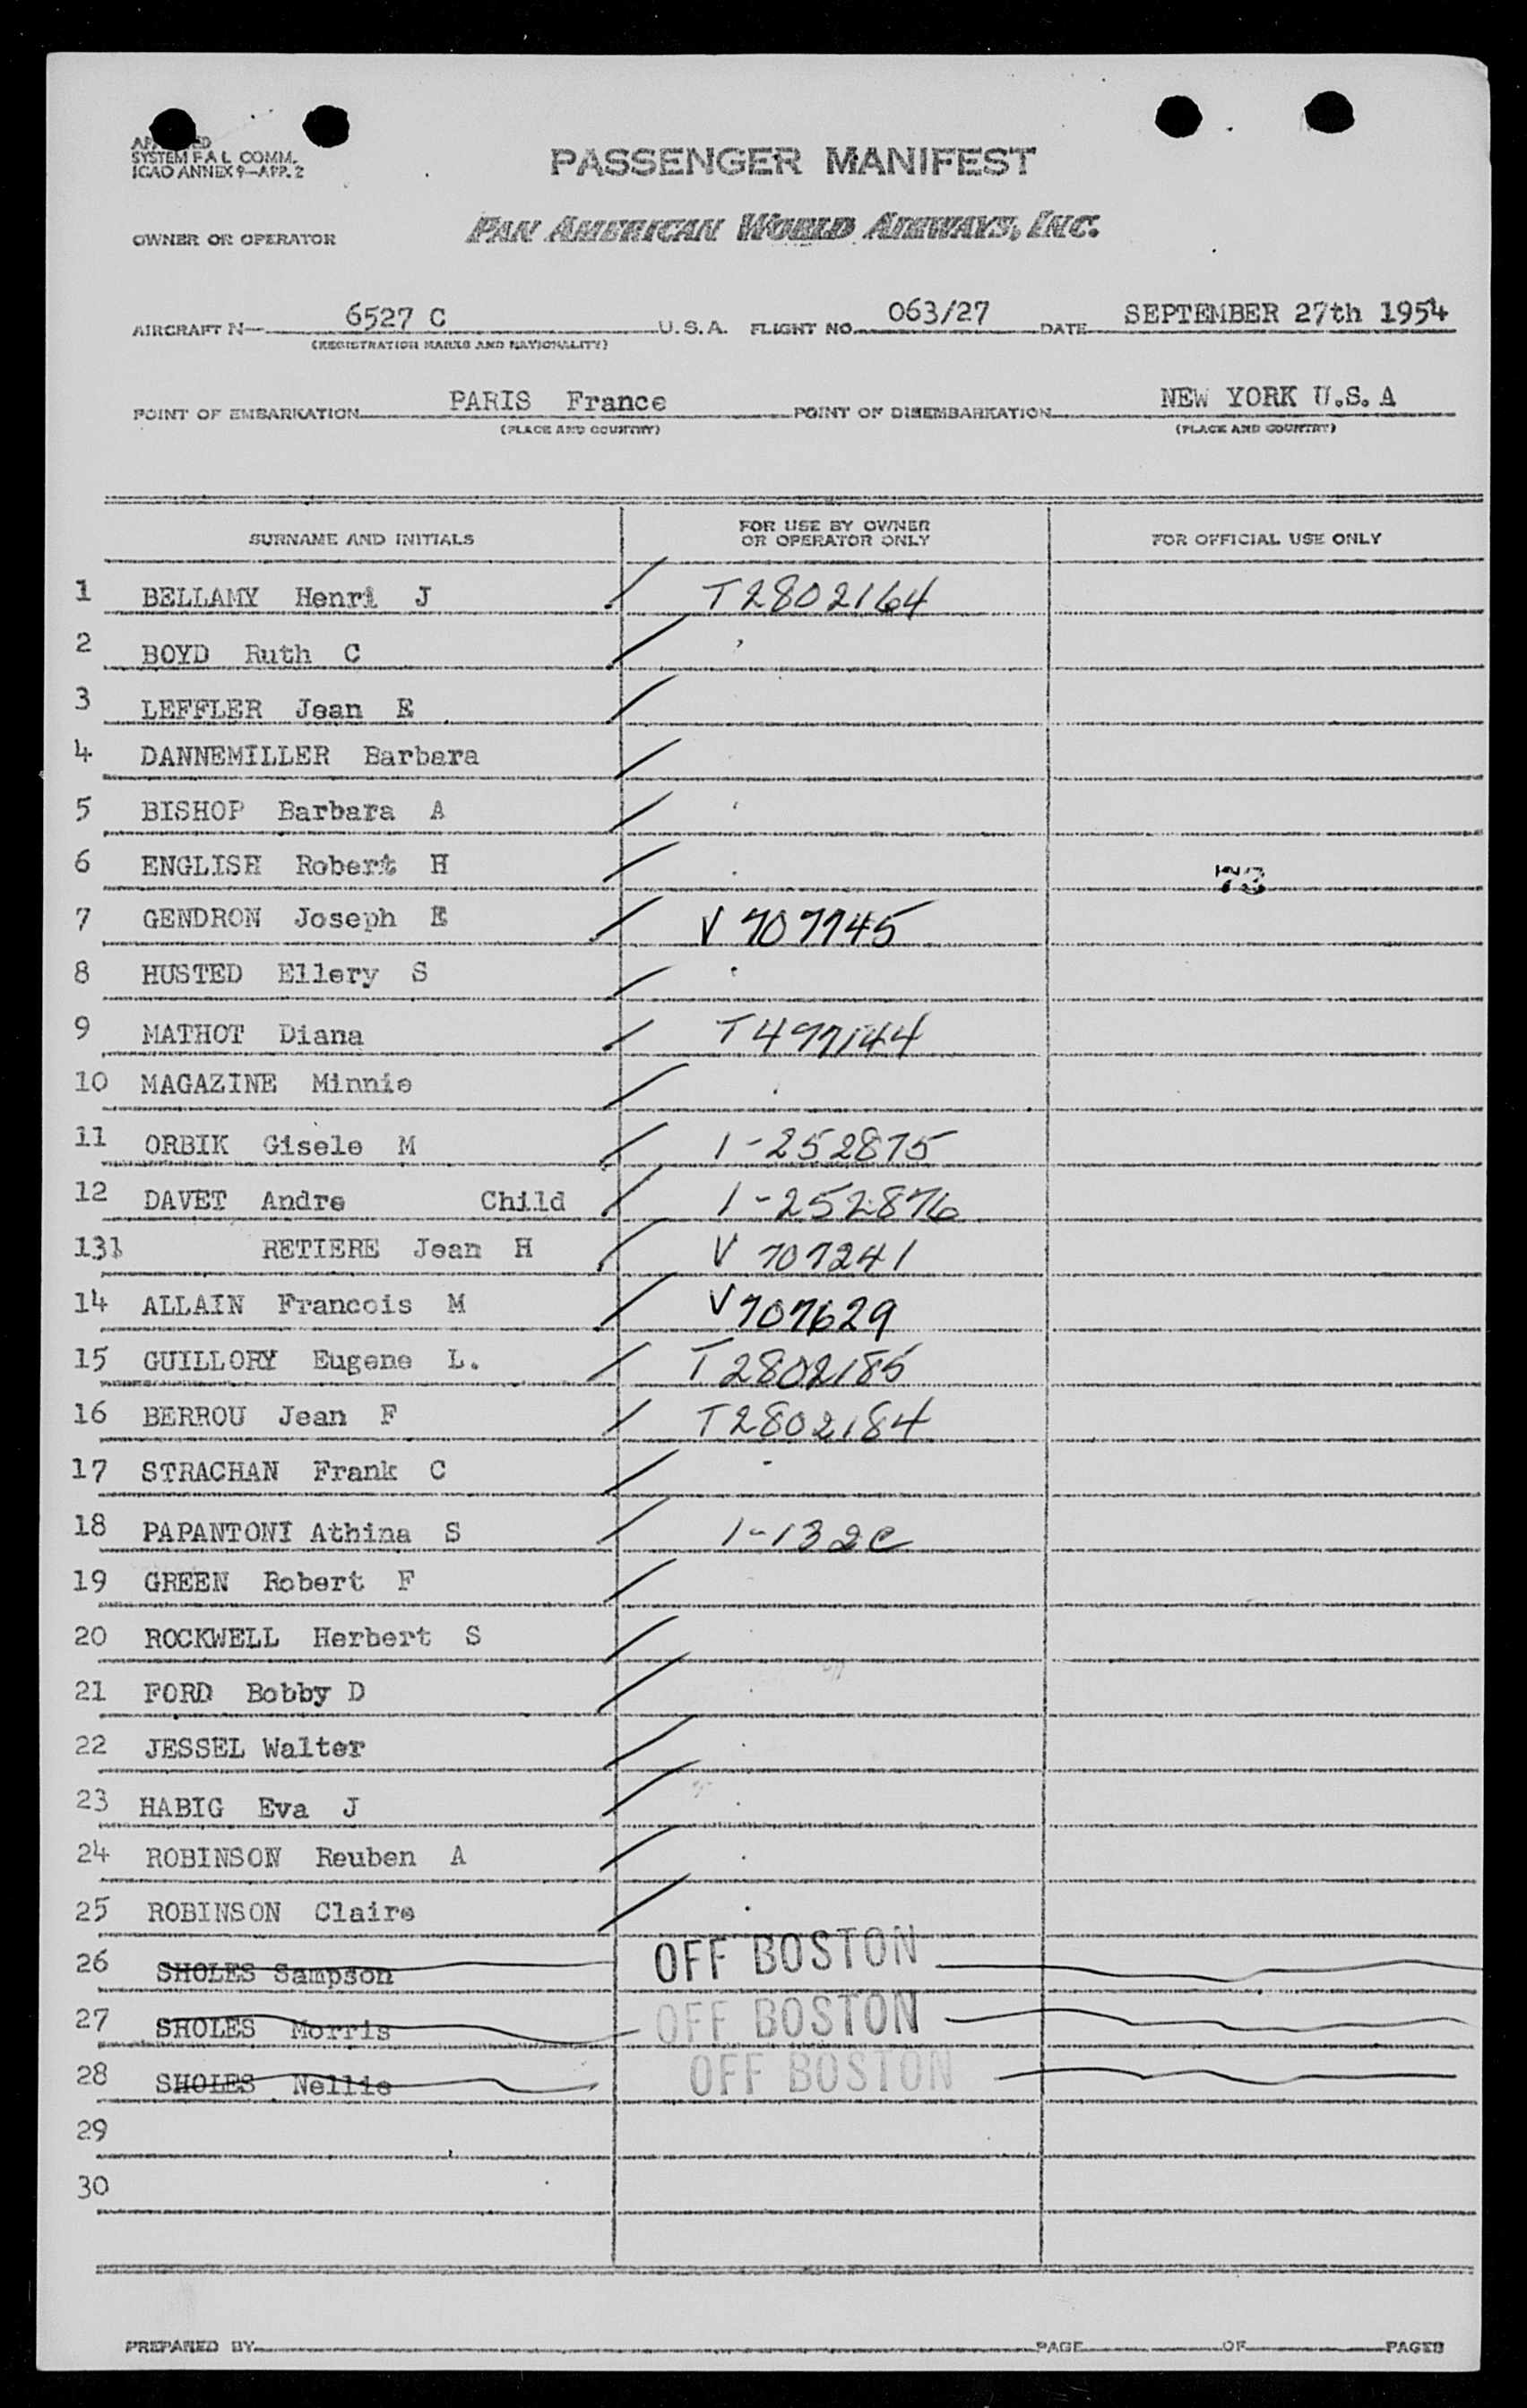 APPROVED
SYSTEM F A L COMM.
ICAO ANNEX 9—APP. 2
PASSENGER MANIFEST
OWNER OR OPERATOR PAN AMERICAN WORLD AIRWAYS, INC.
AIRCRAFT N— 6527 C U.S.A. FLIGHT NO. 063/27 DATE SEPTEMBER 27th 1954
(REGISTRATION MARKS AND NATIONALITY)
POINT OF EMBARKATION PARIS France POINT OF DISEMBARKATION NEW YORK U.S.A
(PLACE AND COUNTRY) (PLACE AND COUNTRY)
SURNAME AND INITIALS FOR USE BY OWNER OR OPERATOR ONLY FOR OFFICIAL USE ONLY
1 BELLAMY Henri J T2802164
2 BOYD Ruth C
3 LEFFLER Jean E
4 DANNEMILLER Barbara
5 BISHOP Barbara A
6 ENGLISH Robert H
7 GENDRON Joseph E V 707745
8 HUSTED Ellery S
9 MATHOT Diana T497144
10 MAGAZINE Minnie
11 ORBIK Gisele M 1-252875
12 DAVET Andre Child 1-252876
13 RETIERE Jean H V 707241
14 ALLAIN Francois M V707629
15 GUILLORY Eugene L. T2802185
16 BERROU Jean F T2802184
17 STRACHAN Frank C
18 PAPANTONI Athina S 1-132C
19 GREEN Robert F
20 ROCKWELL Herbert S
21 FORD Bobby D
22 JESSEL Walter
23 HABIG Eva J
24 ROBINSON Reuben A
25 ROBINSON Claire
26 SHOLES Sampson OFF BOSTON
27 SHOLES Morris OFF BOSTON
28 SHOLES Nellie OFF BOSTON
29
30
PREPARED BY PAGE OF PAGES